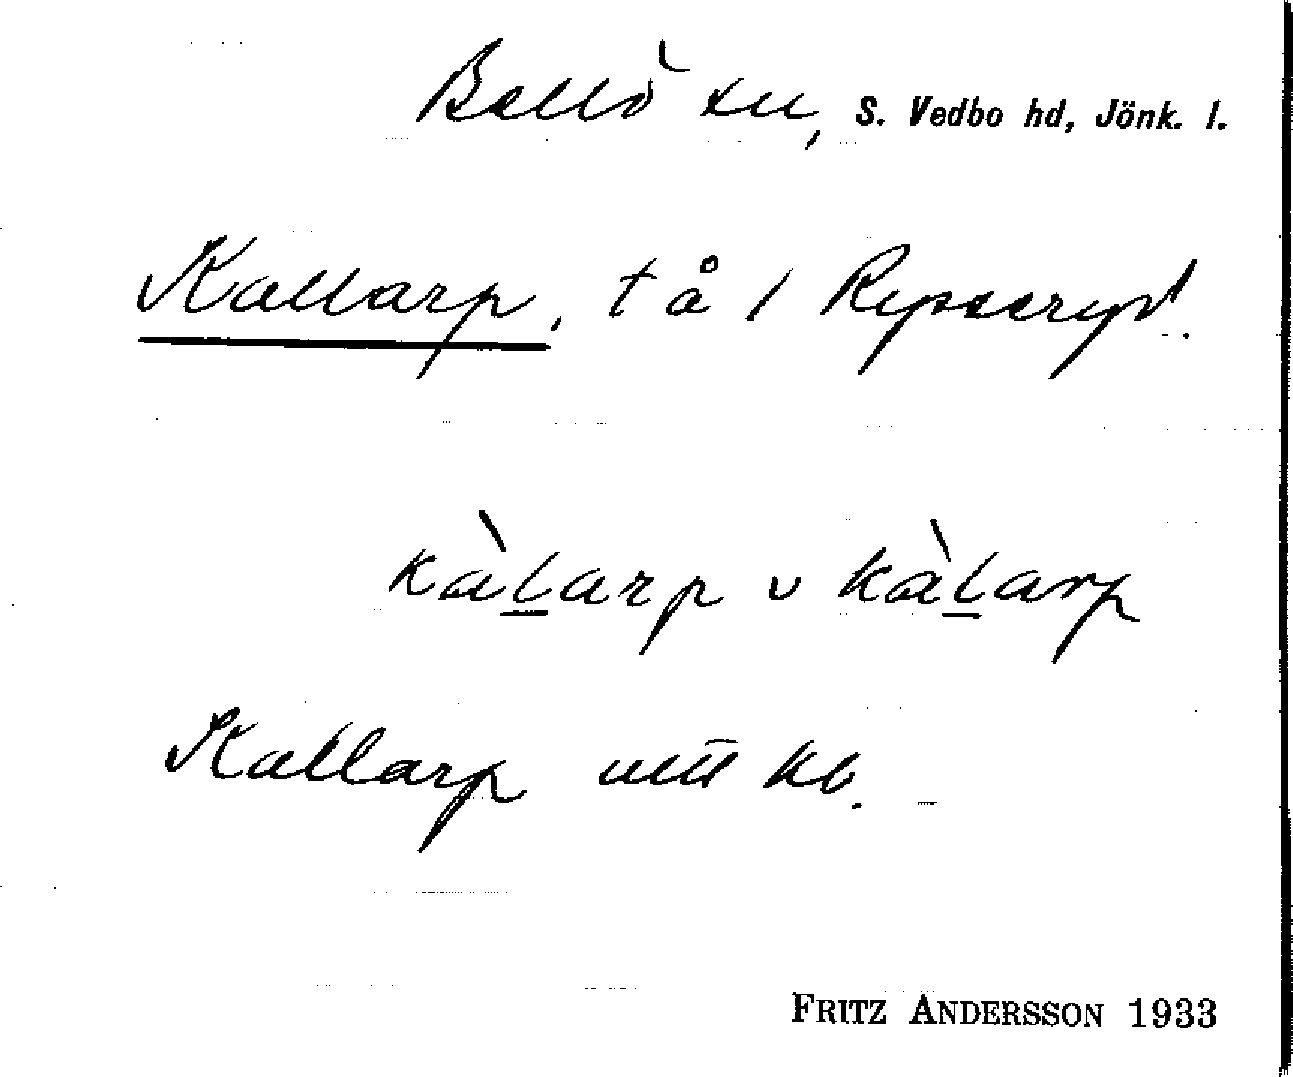 Bellö sn, S. Vedbo hd, Jönk. l.
Kallarp, t å 1 Repseryd.
kàlarp v kàlarp
Kallarp kb.
FRITZ ANDERSSON 1933